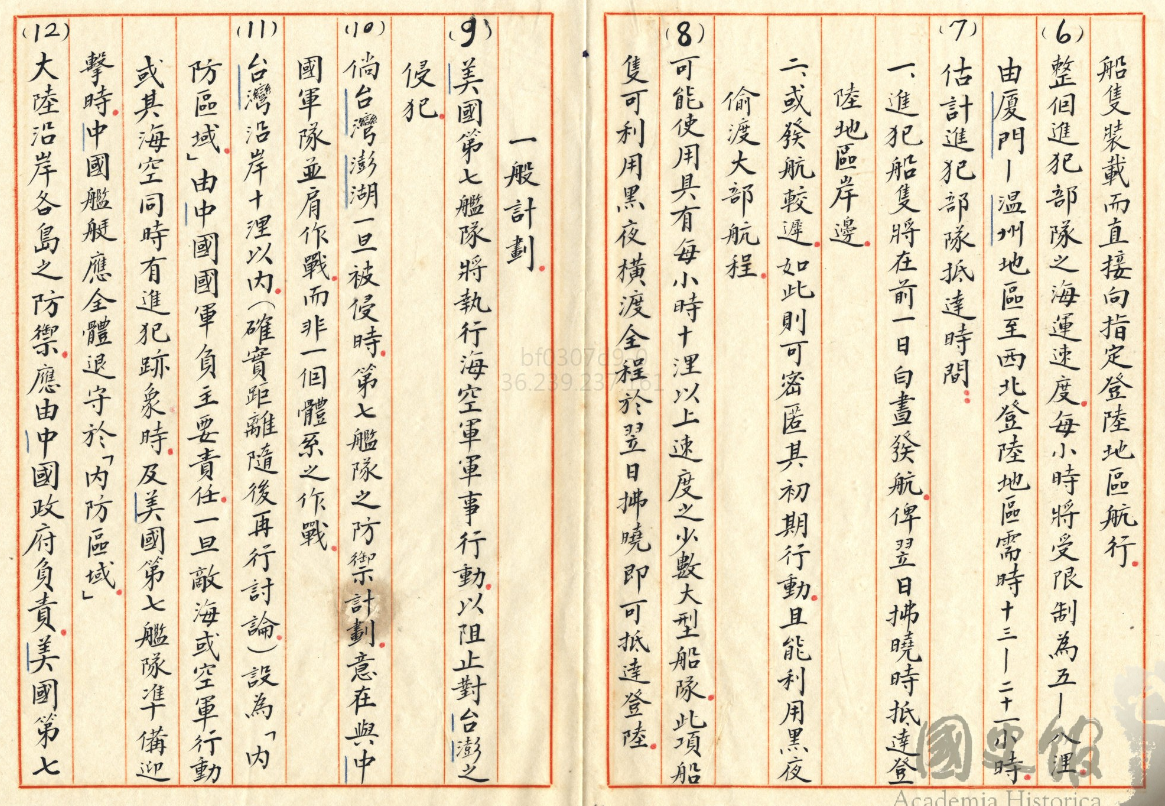 船隻裝載而直接向指定登陸地區航行。
(6)
整個進犯部隊之海運速度。每小時將受限制為五—八浬。
由厦門—温州地區至西北登陸地區需時十三—二十一小時。
(7)
估計進犯部隊抵達時間：
一、進犯船隻將在前一日白晝發航。俾翌日拂曉時抵達登
陸地區岸邊。
二、或發航較遲。如此則可密匿其初期行動。且能利用黑夜
偷渡大部航程。
(8)
可能使用具有每小時十浬以上速度之少數大型船隊。此項船
隻可利用黑夜橫渡全程於翌日拂曉即可抵達登陸。
一般計劃。
(9)
美國第七艦隊將執行海空軍軍事行動。以阻止對台澎之
侵犯。
(10)
倘台灣澎湖一旦被侵時。第七艦隊之防禦計劃。意在與中
國軍隊並肩作戰。而非一個體系之作戰。
(11)
台灣沿岸十浬以內。（確實距離隨後再行討論。）設為「內
防區域。」由中國國軍負主要責任。一旦敵海或空軍行動
或其海空同時有進犯跡象時。及美國第七艦隊準備迎
擊時。中國艦艇應全體退守於「內防區域。」
(12)
大陸沿岸各島之防禦。應由中國政府負責。美國第七
國史館
Academia Historica